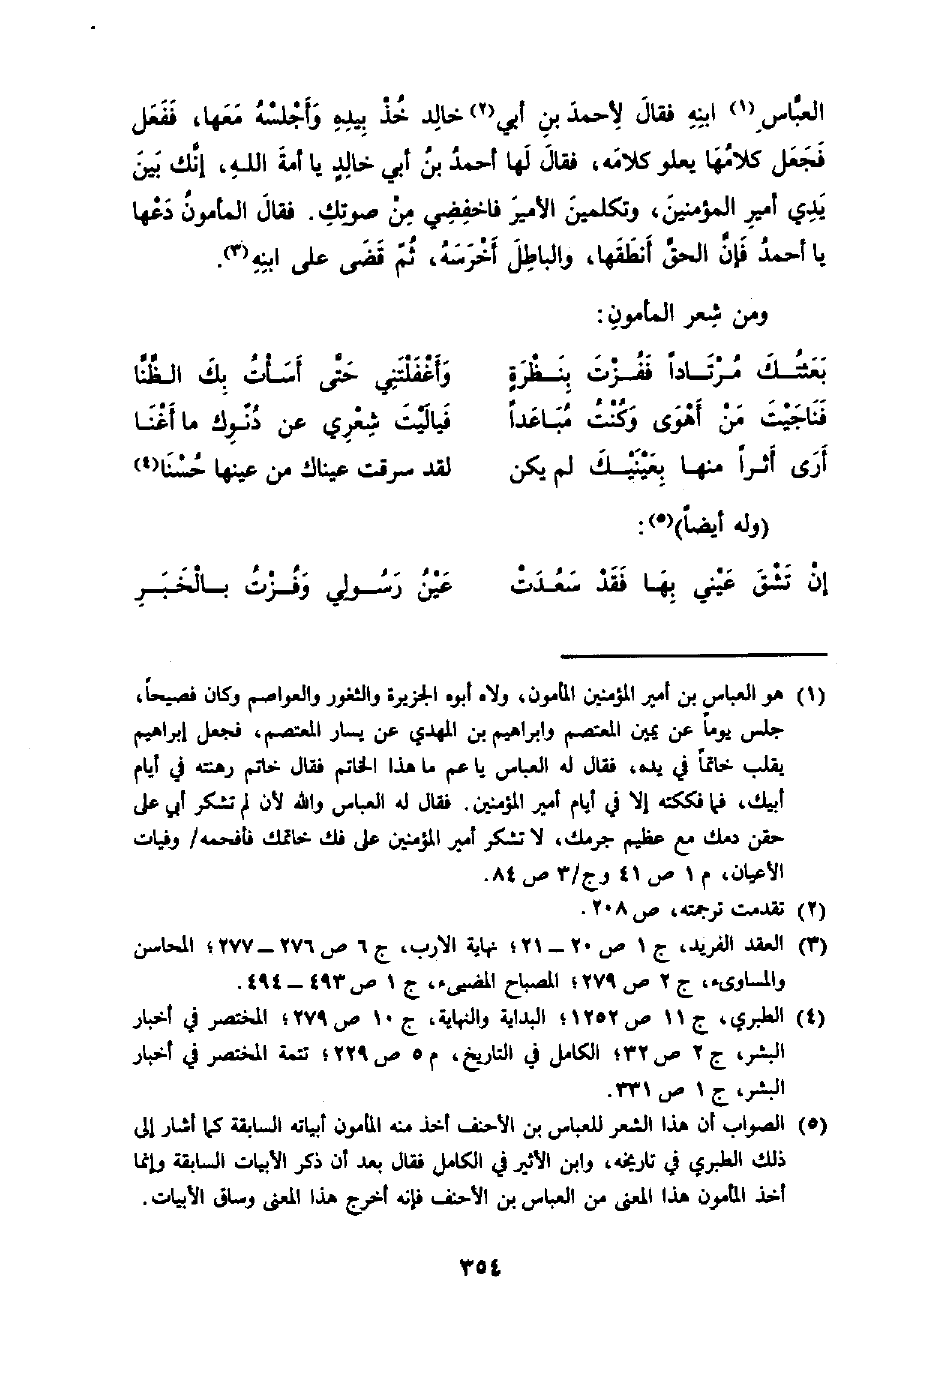 العبَّاسِ(١) ابنِهِ فقالَ لِأحمدَ بنِ أبي(٢) خالِد خُذْ بِيدِهِ وَأَجْلسْهُ مَعَها، فَفَعَل
فَجَعَل كلامُهَا يعلو كلامَه، فقالَ لَها أحمدُ بنُ أبي خالِدٍ يا أمةَ اللهِ، إنَّك بَينَ
يَدِي أميرِ المؤمنينَ، وتكلمينَ الأميرَ فاخفِضِي مِنْ صوتِكِ. فقالَ المأمونُ دَعْها
يا أحمدُ فَإنَّ الحقَّ أنطَقَها، والباطِلَ أَخْرَسَهُ، ثُمّ قَضَى على ابنِهِ(٣).
ومن شِعر المأمونِ:
بَعَثْتُكَ مُرْتَاداً فَفُزْتَ بِنَظْرَةٍ وَأَغْفَلْتَنِي حَتَّى أَسَأْتُ بِكَ الظَّنَّا
فَنَاجَيْتَ مَنْ أَهْوَى وَكُنْتُ مُبَاعَداً فَيالَيْتَ شِعْرِي عن دُنُوِك ما أَغْنَا
أَرَى أَثراً منها بِعَيْنَيْكَ لم يكن لقد سرقت عيناك من عينها حُسْنَا(٤)
(وله أيضاً)(٥):
إنْ تَشْقَ عَيْنِي بِهَا فَقَدْ سَعُدَتْ عَيْنُ رَسُولِي وَفُزْتُ بالْخَبَرِ
(١) هو العباس بن أمير المؤمنين المأمون، ولاه أبوه الجزيرة والثغور والعواصم وكان فصيحاً،
جلس يوماً عن يمين المعتصم وابراهيم بن المهدي عن يسار المعتصم، فجعل إبراهيم
يقلب خاتماً في يده، فقال له العباس يا عم ما هذا الخاتم فقال خاتم رهنته في أيام
أبيك، فما فككته إلا في أيام أمير المؤمنين. فقال له العباس والله لأن لم تشكر أبي على
حقن دمك مع عظيم جرمك، لا تشكر أمير المؤمنين على فك خاتمك فأفحمه/ وفيات
الأعيان، م ١ ص ٤١ وج/٣ ص ٨٤.
(٢) تقدمت ترجمته، ص ٢٠٨.
(٣) العقد الفريد، ج ١ ص ٢٠ – ٢١؛ نهاية الارب، ج ٦ ص ٢٧٦ – ٢٧٧؛ المحاسن
والمساوىء، ج ٢ ص ٢٧٩؛ المصباح المضيىء، ج ١ ص ٤٩٣ – ٤٩٤.
(٤) الطبري، ج ١١ ص ١٢٥٢؛ البداية والنهاية، ج ١٠ ص ٢٧٩؛ المختصر في أخبار
البشر، ج ٢ ص ٣٢؛ الكامل في التاريخ، م ٥ ص ٢٢٩؛ تتمة المختصر في أخبار
البشر، ج ١ ص ٣٣١.
(٥) الصواب أن هذا الشعر للعباس بن الأحنف أخذ منه المأمون أبياته السابقة كما أشار إلى
ذلك الطبري في تاريخه، وابن الأثير في الكامل فقال بعد أن ذكر الأبيات السابقة وإنما
أخذ المأمون هذا المعنى من العباس بن الأحنف فإنه أخرج هذا المعنى وساق الأبيات.
٣٥٤